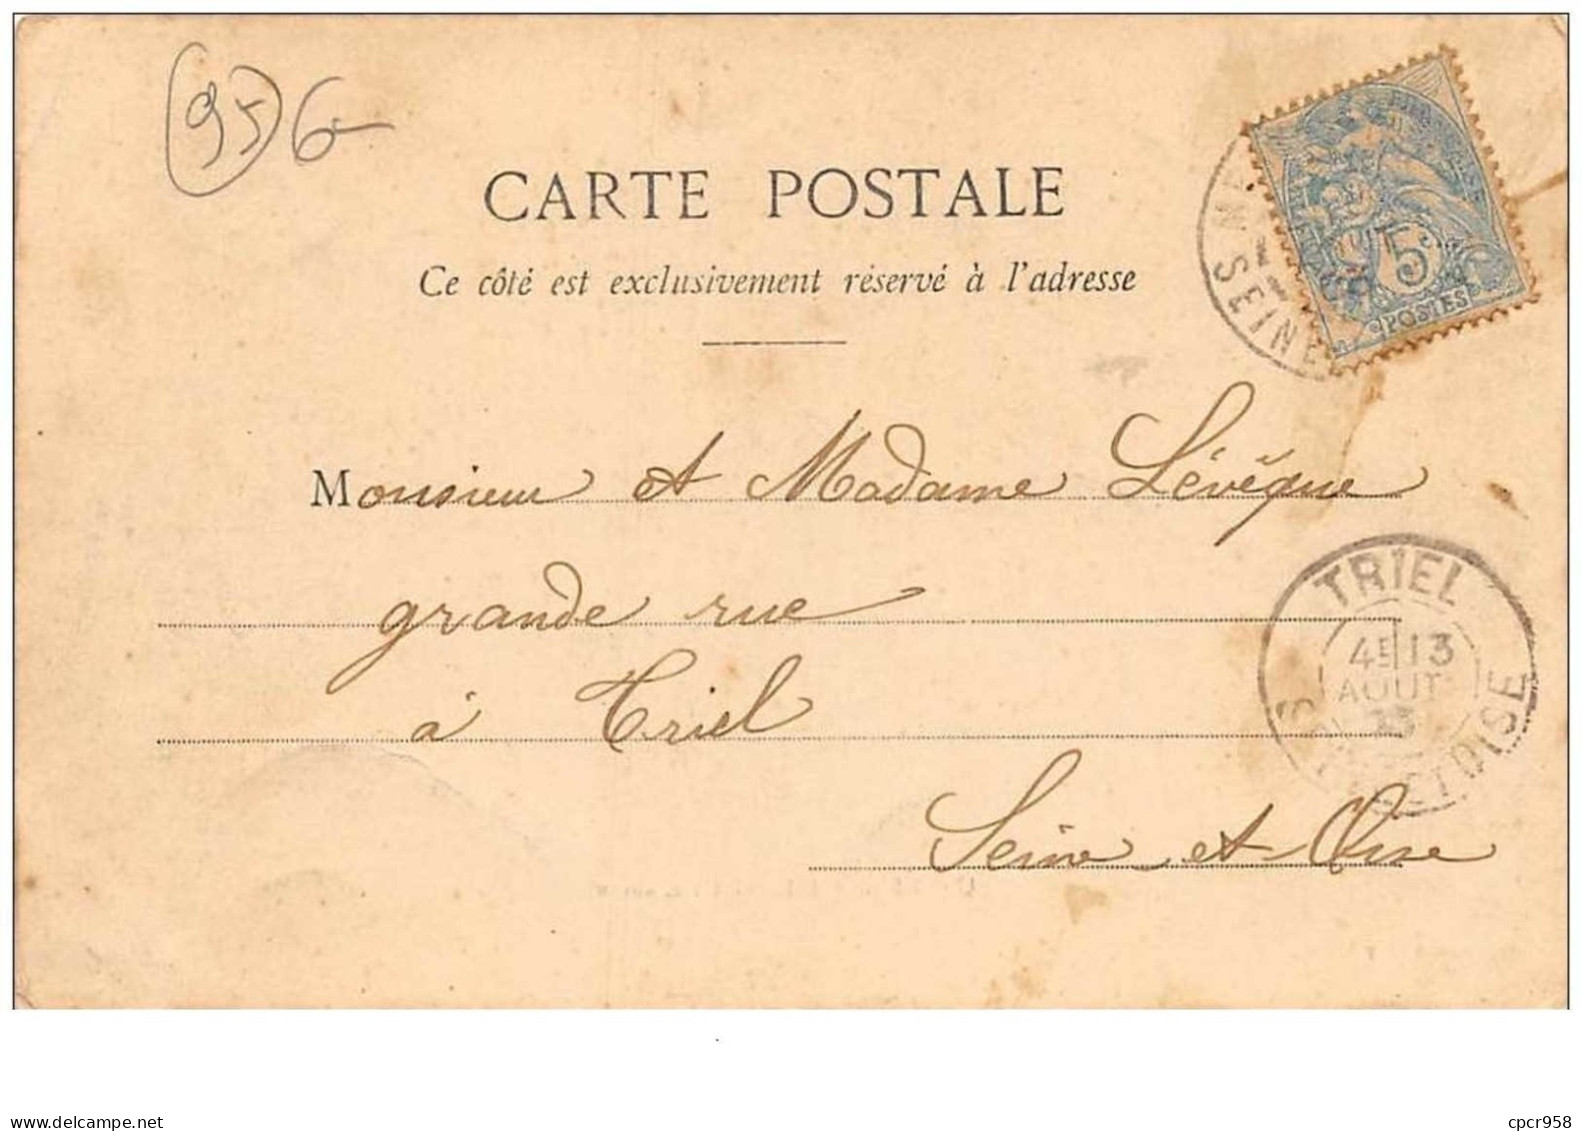 (95) 6-
CARTE POSTALE
Ce côté est exclusivement réservé à l'adresse
5c
POSTES
SEINE
Monsieur et Madame Lévêque
grande rue
à Triel
Seine et Oise
TRIEL
4E 13
AOUT
SEINE-ET-OISE
cpcr958